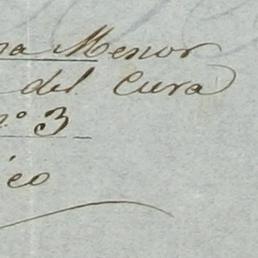 na Menor
del Cura
nº 3
ico